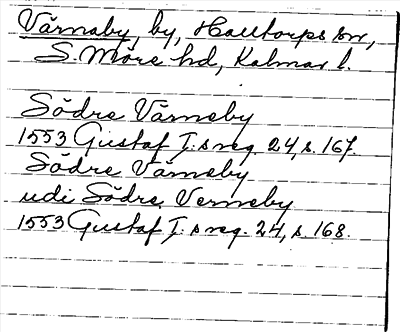 Värnaby, by, Halltorps sn,
S. Möre hd, Kalmar l.
Södre Värneby
1553 Gustaf I:s reg. 24, s. 167.
Södre Värneby
udi Södre Verneby
1553 Gustaf I:s reg. 24, s. 168.